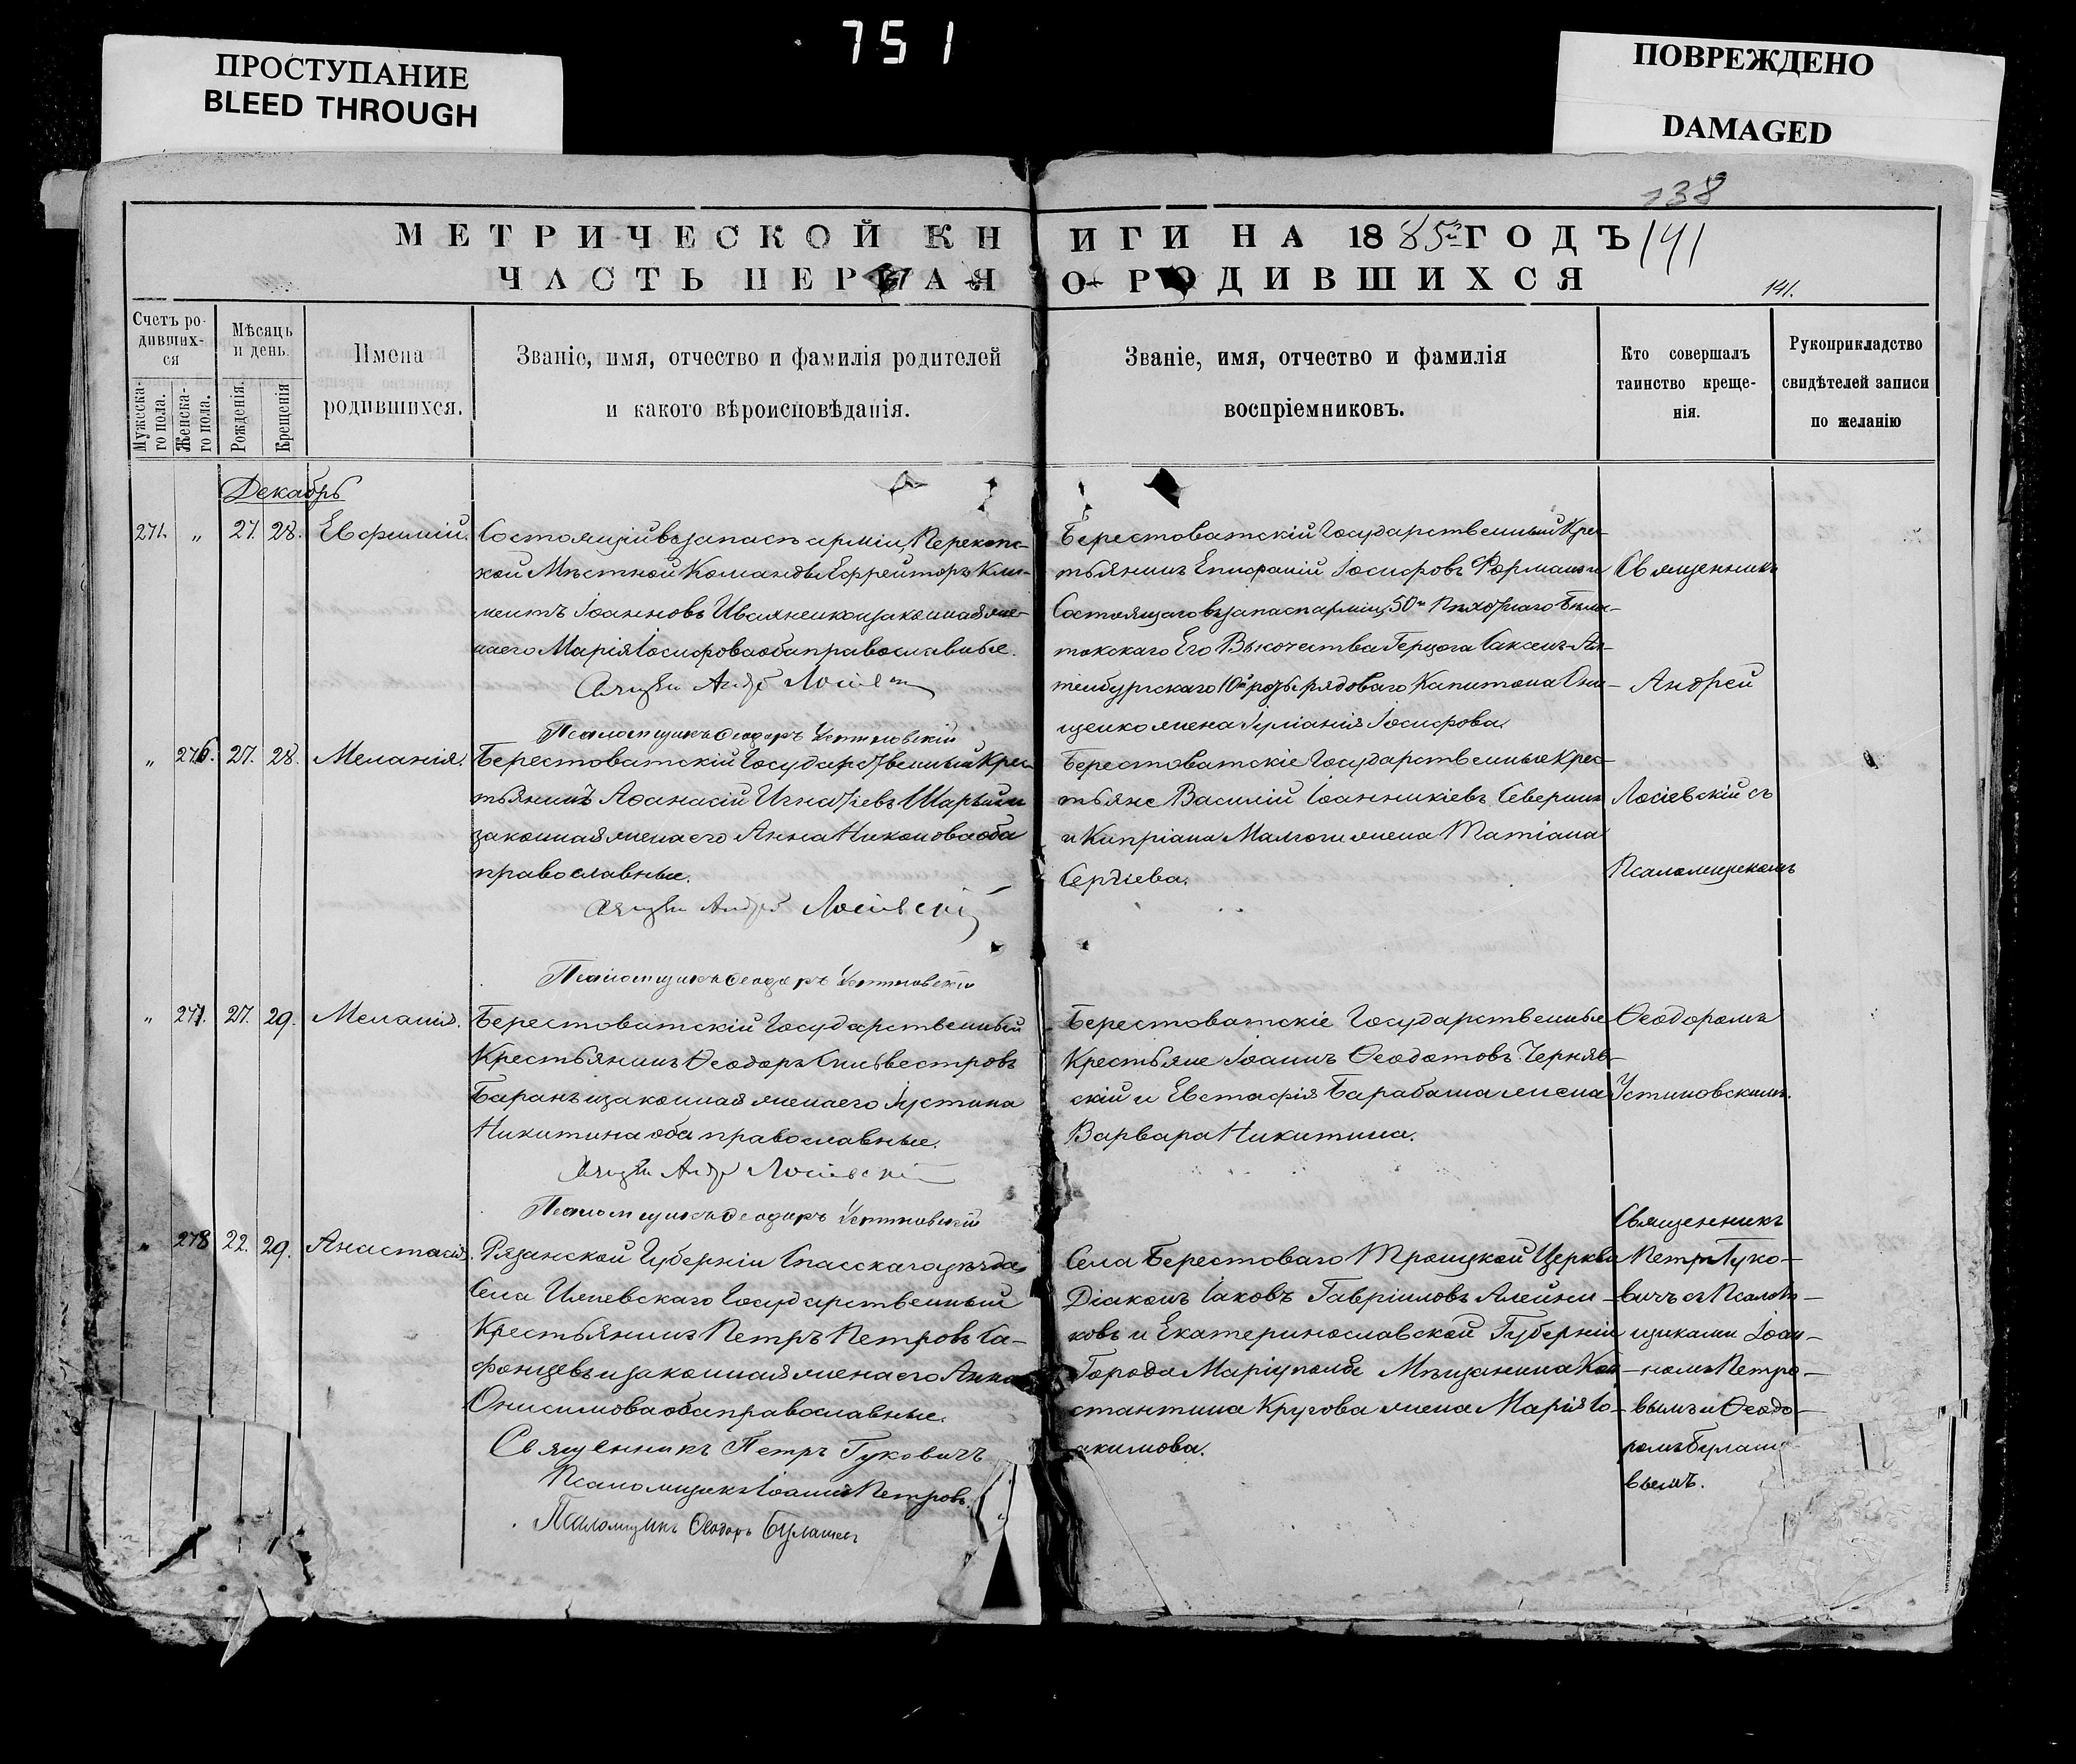 751
ПРОСТУПАНИЕ
BLEED THROUGH
ПОВРЕЖДЕНО
DAMAGED
138
МЕТРИЧЕСКОЙ КНИГИ НА 1885й ГОДЪ
141
ЧАСТЬ ПЕРВАЯ О РОДИВШИХСЯ
141.
Счетъ ро-
дивших-
ся
Мужеска-
го пола.
Женска-
го пола.
Мѣсяцъ
и день.
Рожденія.
Крещенія
Имена
родившихся.
Званіе, имя, отчество и фамилія родителей
и какого вѣроисповѣданія.
Званіе, имя, отчество и фамилія
воспріемниковъ.
Кто совершалъ
таинство креще-
нія.
Рукоприкладство
свидѣтелей записи
по желанію
Декабрь
271. „ 27. 28. Евфимій.
Состоящій въ запасѣ арміи, Перекопс-
кой Мѣстной Команды Ефрейторъ Кли-
ментъ Іоанновъ Иваненко и законная же-
на его Марія Іосифова оба православные.
Священ Андр Лосіевскій
Псаломщикъ Ѳеодоръ Устиновскій
Берестоватскій Государственный Крес-
тьянинъ Епифаній Іосифовъ и
Состоящаго въ запасѣ арміи, 50го Пѣхотнаго Бѣлос-
токскаго Его Высочества Герцога Саксенъ-Аль-
тенбургскаго 10й роты рядоваго Капитона Они-
щенко жена Іосифова.
„ 276. 27. 28. Меланія.
Берестоватскій Государственный Крес-
тьянинъ Аѳанасій Игнатіевъ и
законная жена его Анна Никонова оба
православные.
Священ Андрей Лосіевскій
Псаломщикъ Ѳеодоръ Устиновскій
Берестоватскіе Государственные Крес-
тьяне Василій Іоанникіевъ Северинъ
и Кипріана жена Татіана
Сергіева.
„ 277. 27. 29. Меланія.
Берестоватскій Государственный
Крестьянинъ Ѳеодоръ Сильвестровъ
Баранъ и законная жена его Іустина
Никитина оба православные.
Священ Андр Лосіевскій
Псаломщикъ Ѳеодоръ Устиновскій
Берестоватскіе Государственные
Крестьяне Іоаннъ Ѳеодотовъ Черняв-
скій и Евстафія Барабаша жена
Варвара Никитина.
Священникъ
Андрей
Лосіевскій съ
Псаломщикомъ
Ѳеодоромъ
Устиновскимъ.
„ 278 22. 29. Анастасія.
Рязанской Губерніи Спасскаго уѣзда,
Села Государственный
Крестьянинъ Петръ Петровъ Са-
фонцевъ и законная жена его Анна
Онисимова оба православные.
Священникъ Петръ Гуковичъ
Псаломщикъ Іоаннъ Петровъ.
Псаломщикъ Ѳеодоръ Булашевъ
Села Берестоваго Троицкой Церкви
Діаконъ Іаковъ Гавріиловъ Алейни-
ковъ и Екатеринославской Губерніи
Города Маріуполя Мѣщанина Кон-
стантина Кругова жена Марія Іо-
акимова.
Священникъ
Петръ Гуко-
вичъ съ Псалом-
щиками Іоан-
номъ Петро-
вымъ и Ѳеодо-
ромъ Булаше
вымъ.